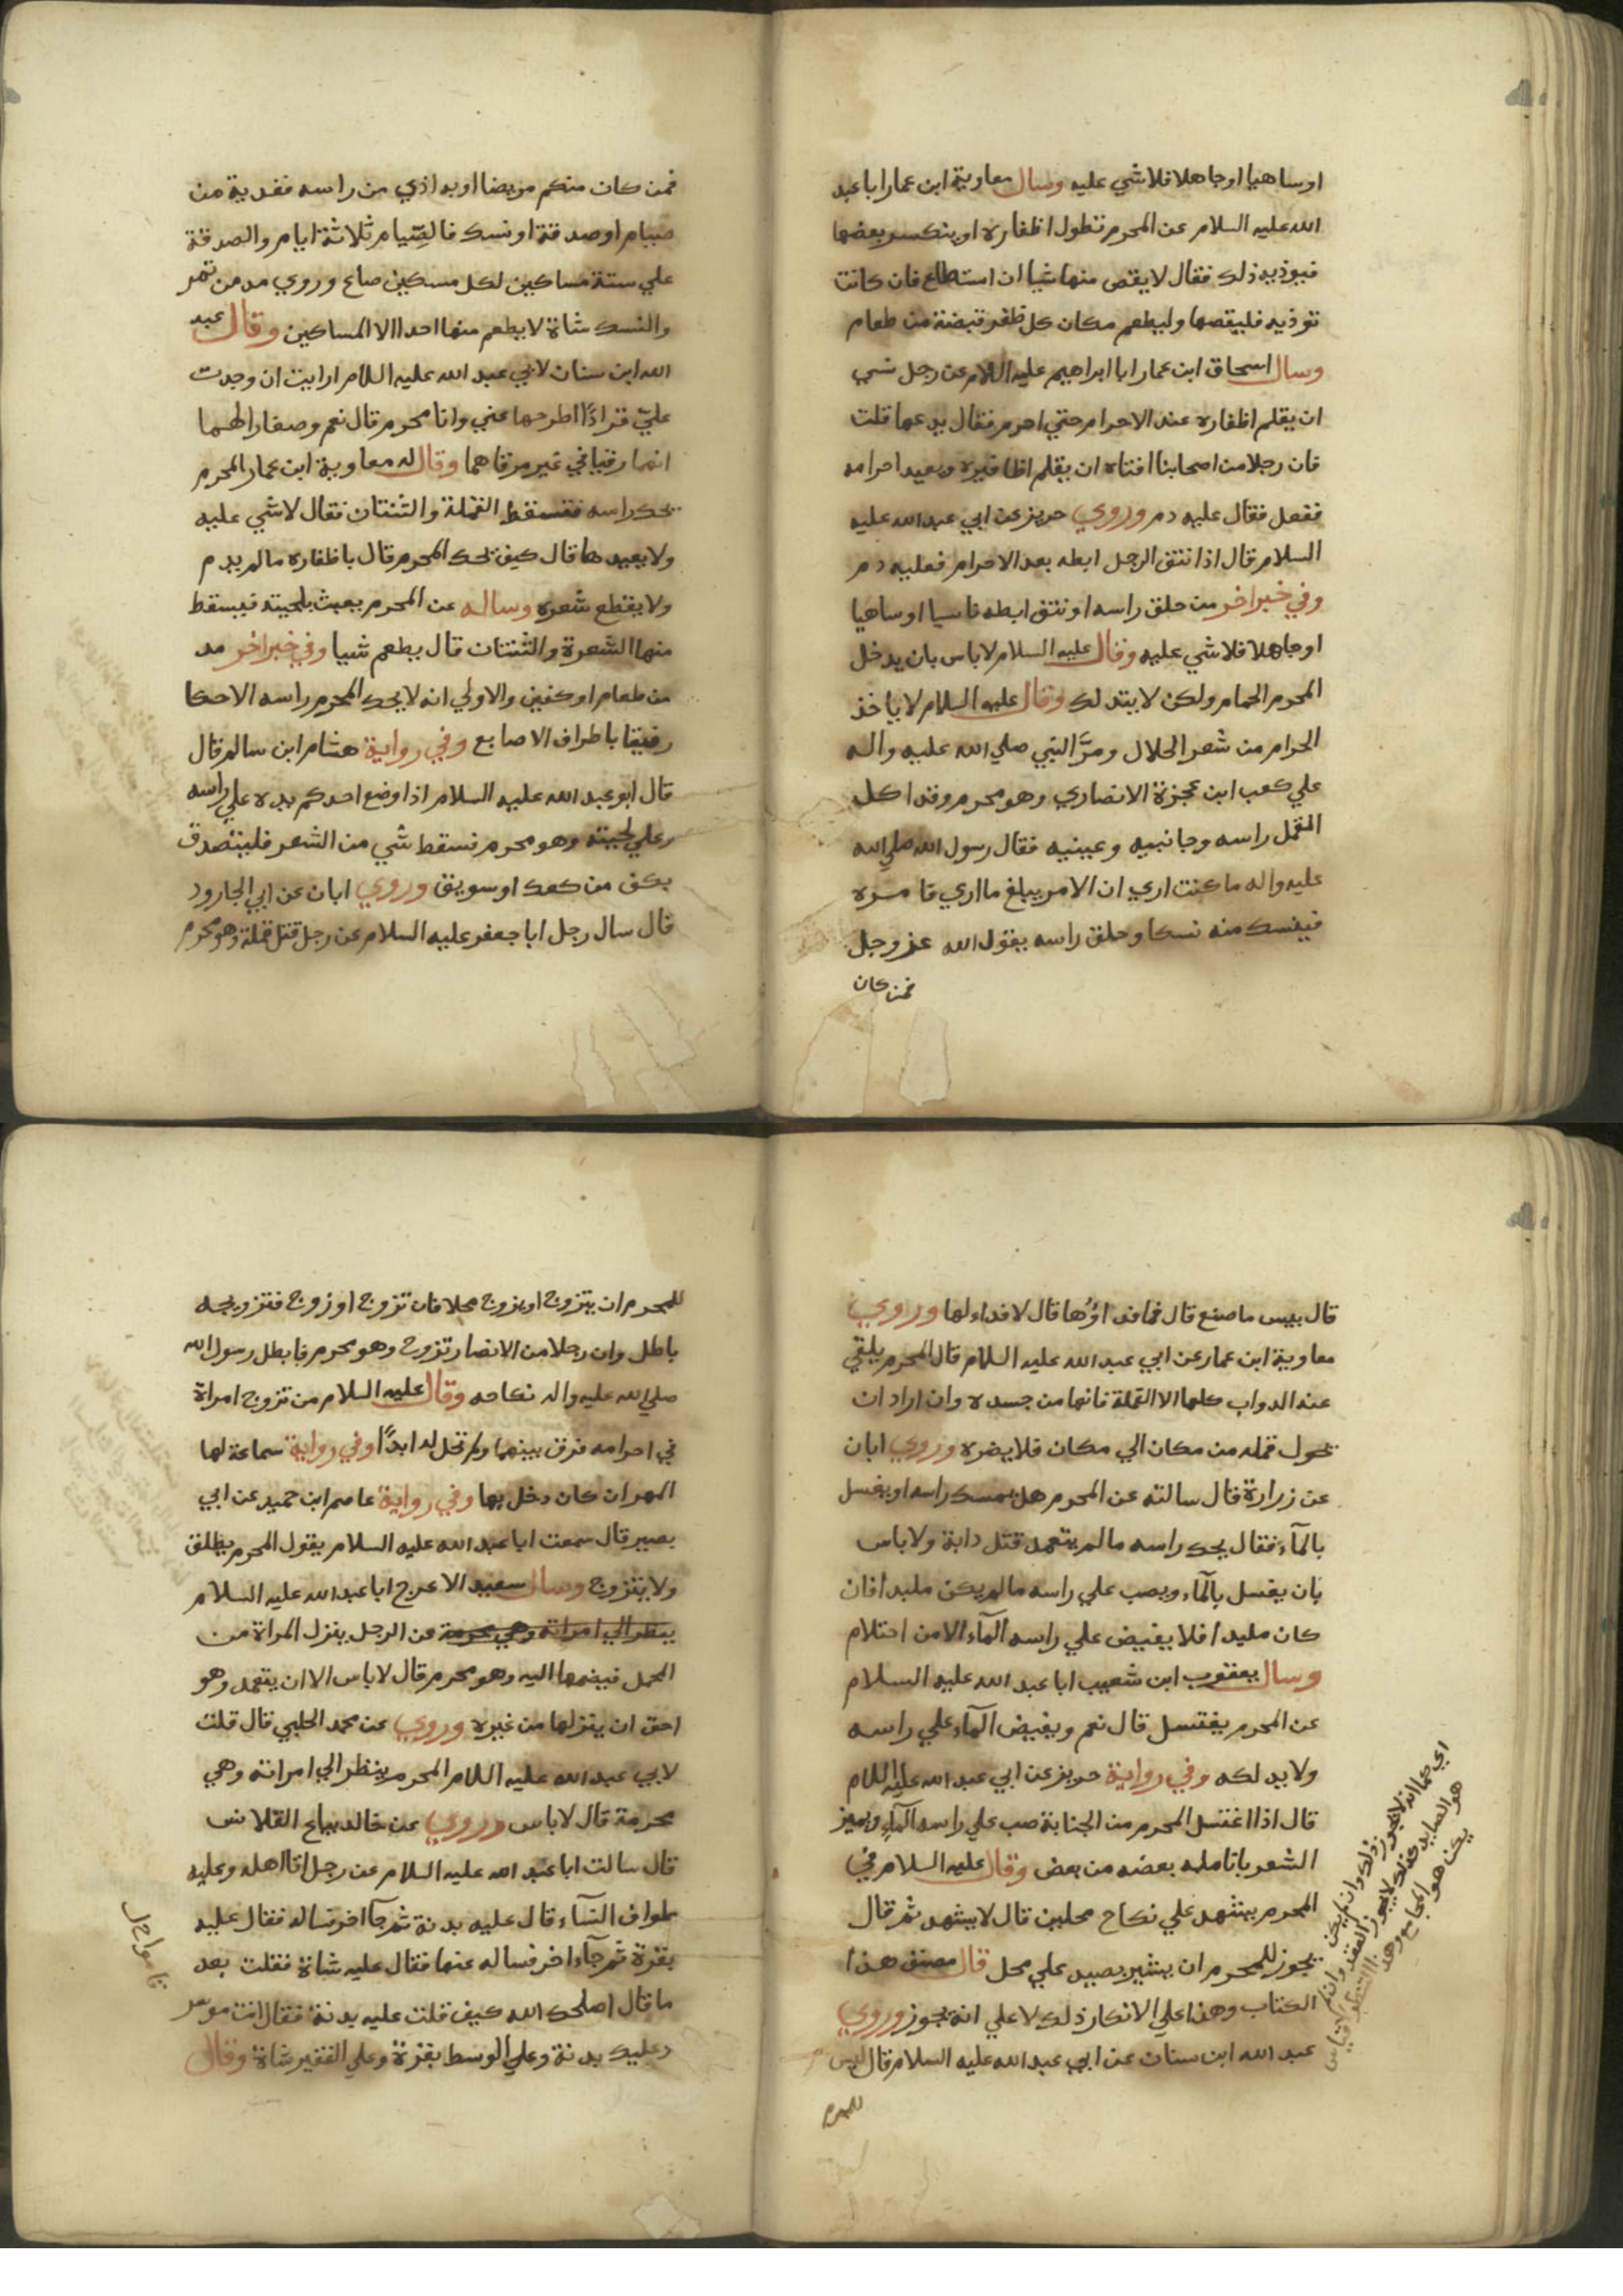 اوساهيا اوجاهلا فلاشي عليه وسال معاوية ابن عمار اباعبد
الله عليه السلام عن المحرم تطول اظفاره او ينكسر بعضها
فيوذيه ذلك فقال لا يقص منها شيا ان استطاع فان كانت
توذيه فليقصها وليطعم مكان كل ظفر قبضة من طعام
وسال اسحاق ابن عمار ابا ابراهيم عليه اللام عن رجل نسي
ان يقلم اظفاره عند الاحرام حتي احرم فقال يدعها قلت
فان رجلا من اصحابنا افتاه ان يقلم اظافيره ويعيد احرامه
ففعل فقال عليه دم وروي حريز عن ابي عبد الله عليه
السلام قال اذا نتف الرجل ابطه بعد الاحرام فعليه دم
وفي خبر اخر من حلق راسه او نتف ابطه ناسيا او ساهيا
اوجاهلا فلاشي عليه وقال عليه السلام لاباس بان يدخل
المحرم الحمام ولكن لا يتدلك وقال عليه السلام لا ياخذ
الحرام من شعر الحلال ومرَّ النبي صلي الله عليه واله
علي كعب ابن عجزة الانصاري وهو محرم وقد اكل
القمل راسه وجانبيه وعينيه فقال رسول الله صلي الله
عليه واله ما كنت اري ان الامر يبلغ ما اري فامره
فينسك منه نسكا وحلق راسه بقول الله عز وجل
فمن كان
فمن كان منكم مريضا او به اذي من راسه ففدية من
صيام او صدقة او نسك فالصّيام ثلاثة ايام والصدقة
علي ستة مساكين لكل مسكين صاع وروي مد من تمر
والنسك شاة لا يطعم منها احدا الا المساكين وقال عبد
الله ابن سنان لابي عبد الله عليه اللام ارايت ان وجدت
عليّ قرادًا اطرحها عني وانا محرم قال نعم وصغارا لهما
انهما رقيا في غير مرقاهما وقال له معاوية ابن عمار المحرم
يحك راسه فتسقط القملة والثنتان فقال لاشي عليه
ولا يعيدها قال كيف يحك المحرم قال باظفاره مالم يدم
ولا يقطع شعره وساله عن المحرم يعبث بلحيته فيسقط
منها الشعرة والثنتان قال يطعم شيا وفي خبر اخر مد
من طعام او كفين والاولي انه لا يحك المحرم راسه الا حكا
رفيقا باطراف الاصابع وفي رواية هشام ابن سالم قال
قال ابو عبد الله عليه السلام اذا وضع احدكم يده علي راسه
وعلي لحيته وهو محرم فسقط شي من الشعر فليتصدق
بكف من كعك او سويق وروي ابان عن ابي الجارود
قال سال رجل ابا جعفر عليه السلام عن رجل قتل قملة وهو محرم
قال بيس ما صنع قال فما فداؤها قال لا فداء لها وروي
معاوية ابن عمار عن ابي عبد الله عليه السلام قال المحرم يلقي
عنه الدواب كلها الا القملة فانها من جسده وان اراد ان
يحول قمله من مكان الي مكان فلا يضره وروي ابان
عن زرارة قال سالته عن المحرم هل يمسك راسه او يغسل
بالمآء فقال يحك راسه مالم يتعمد قتل دابة ولا باس
بان يغسل بالمآء ويصب علي راسه مالم يكن ملبدا فان
كان ملبدا فلا يفيض علي راسه المآء الا من احتلام
وسال يعقوب ابن شعيب ابا عبد الله عليه السلام
عن المحرم يغتسل قال نعم ويفيض المآء علي راسه
ولا يدلكه وفي رواية حريز عن ابي عبد الله عليه اللام
قال اذا اغتسل المحرم من الجنابة صب علي راسه المآء ويميز
الشعر بانامله بعضه من بعض وقال عليه السلام في
المحرم يشهد علي نكاح محلين قال لا يشهد ثم قال
يجوز للمحرم ان يشير بصيد علي محل قال مصنف هذا
الكتاب وهذا علي الانكار ذلك لا علي انه يجوز وروي
عبد الله ابن سنان عن ابي عبد الله عليه السلام قال ليس
للمحرم
للمحرم ان يتزوج او يزوج محلا فان تزوج او زوج فتزويجه
باطل وان رجلا من الانصار تزوج وهو محرم فابطل رسول الله
صلي الله عليه واله نكاحه وقال عليه السلام من تزوج امراة
في احرامه فرق بينهما ولم تحل له ابدًا وفي رواية سماعة لها
المهر ان كان دخل بها وفي رواية عاصم ابن حميد عن ابي
بصير قال سمعت ابا عبد الله عليه السلام يقول المحرم يطلق
ولا يتزوج وسال سعيد الاعرج ابا عبد الله عليه السلام
ينظر الي امراته وهي محرمة عن الرجل ينزل المراة من
المحمل فيضمها اليه وهو محرم قال لا باس الا ان يتعمد وهو
احق ان ينزلها من غيره وروي عن محمد الحلبي قال قلت
لابي عبد الله عليه اللام المحرم ينظر الي امراته وهي
محرمة قال لا باس وروي عن خالد بياع القلانس
قال سالت ابا عبد الله عليه السلام عن رجل اتا اهله وعليه
طواف النسآء قال عليه بدنة ثم جآء اخر فساله فقال عليه
بقرة ثم جآء اخر فساله عنها فقال عليه شاة فقلت بعد
ما قال اصلحك الله كيف قلت عليه بدنة فقال انت موسر
وعليك بدنة وعلي الوسط بقرة وعلي الفقير شاة وقال